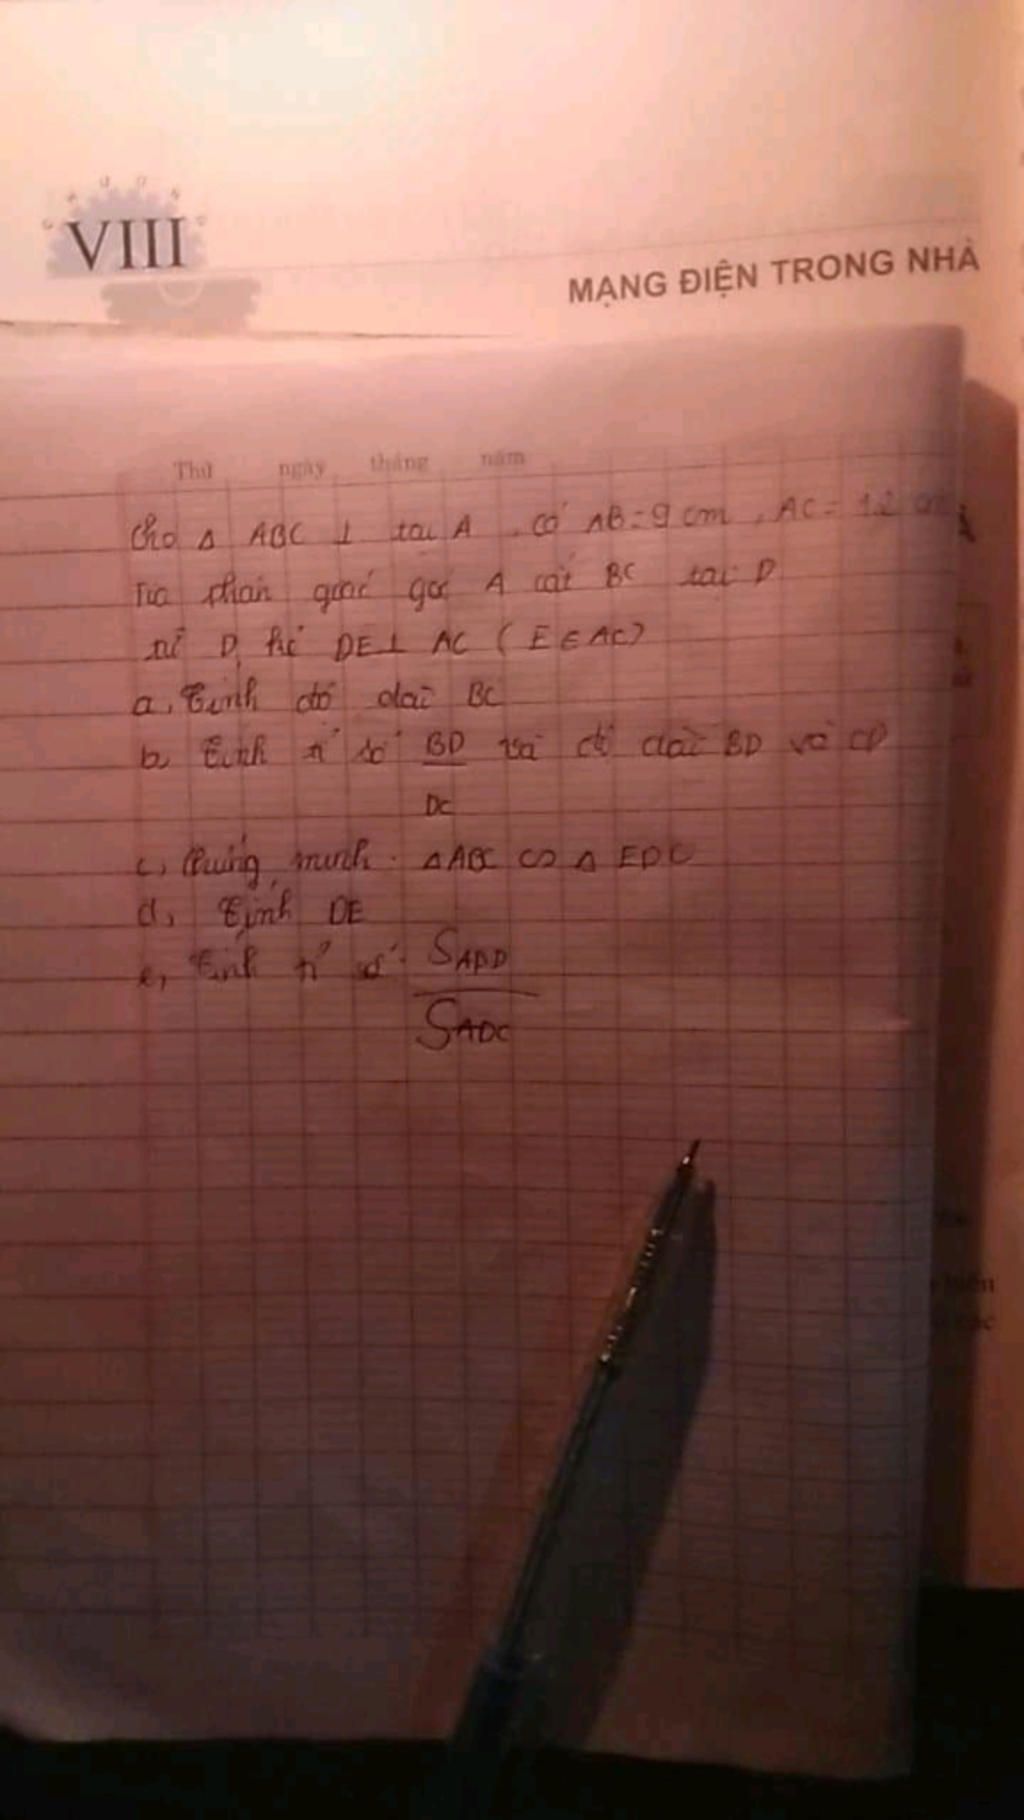 VIII
MẠNG ĐIỆN TRONG NHÀ
Thứ ngày tháng năm
Cho Δ ABC ⊥ tại A . có AB = 9 cm , AC = 12 cm
Tia phân giác góc A cắt BC tại D
từ D kẻ DE ⊥ AC ( E ∈ AC )
a, Tính độ dài BC
b, Tính tỉ số BD và độ dài BD và CD
DC
c, Chứng minh . Δ ABC ∽ Δ EDC
d, Tính DE
e, Tính tỉ số . SABD
SADC